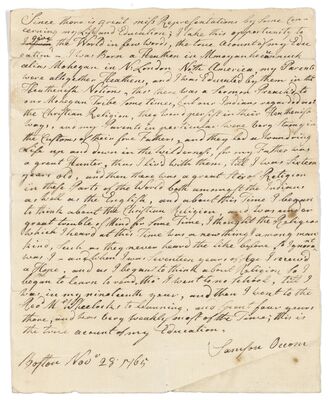 Since there is great miss Representations by Some Con-
cerning my Life and Education; I take this opportunity to
give the World in few words, the true Account of my Edu-
cation — I was Born a Heathen in Mmoyanheeunnuck
alias Mohegan in N. London North America, my Parents
were altogether Heathens, and I was Educated by them in the
Heathenish Notions, tho there was a Sermon Preach'd to
our Mohegan Tribe Some times, but our Indians regarded not
the Christian Religion, they would persist in their Heathenish
ways, and my Parents in particular were very Strong in
the Customs of their fore Fathers, and they led a Wandring
Life up and down in the Wilderness, for my Father was
a great Hunter, thus I liv'd with them, till I was Sixteen
years old, and then there was a great Stir of Religion
in these Parts of the World both amongst the Indians
as well as the English, and about this Time I began
to think about the Christian Religion, and was under
great trouble of Mind for Some Time, I thought the Religion
which I heard at this Time was a new thing among man
kind, Such as they never heard the like before, so Ignorant
was I — and when I was Seventeen years of Age I received
a Hope, and as I began to think about Religion, So I
began to Learn to read, tho I went to no School, till I
was in my nineteenth year, and then I went to the
Revd Mr Wheelock's to Learning, and Spent four years
there, and was very weakly most of the Time; this is
the true account of my Education.
Samson Occom
Boston Novr 28 1765